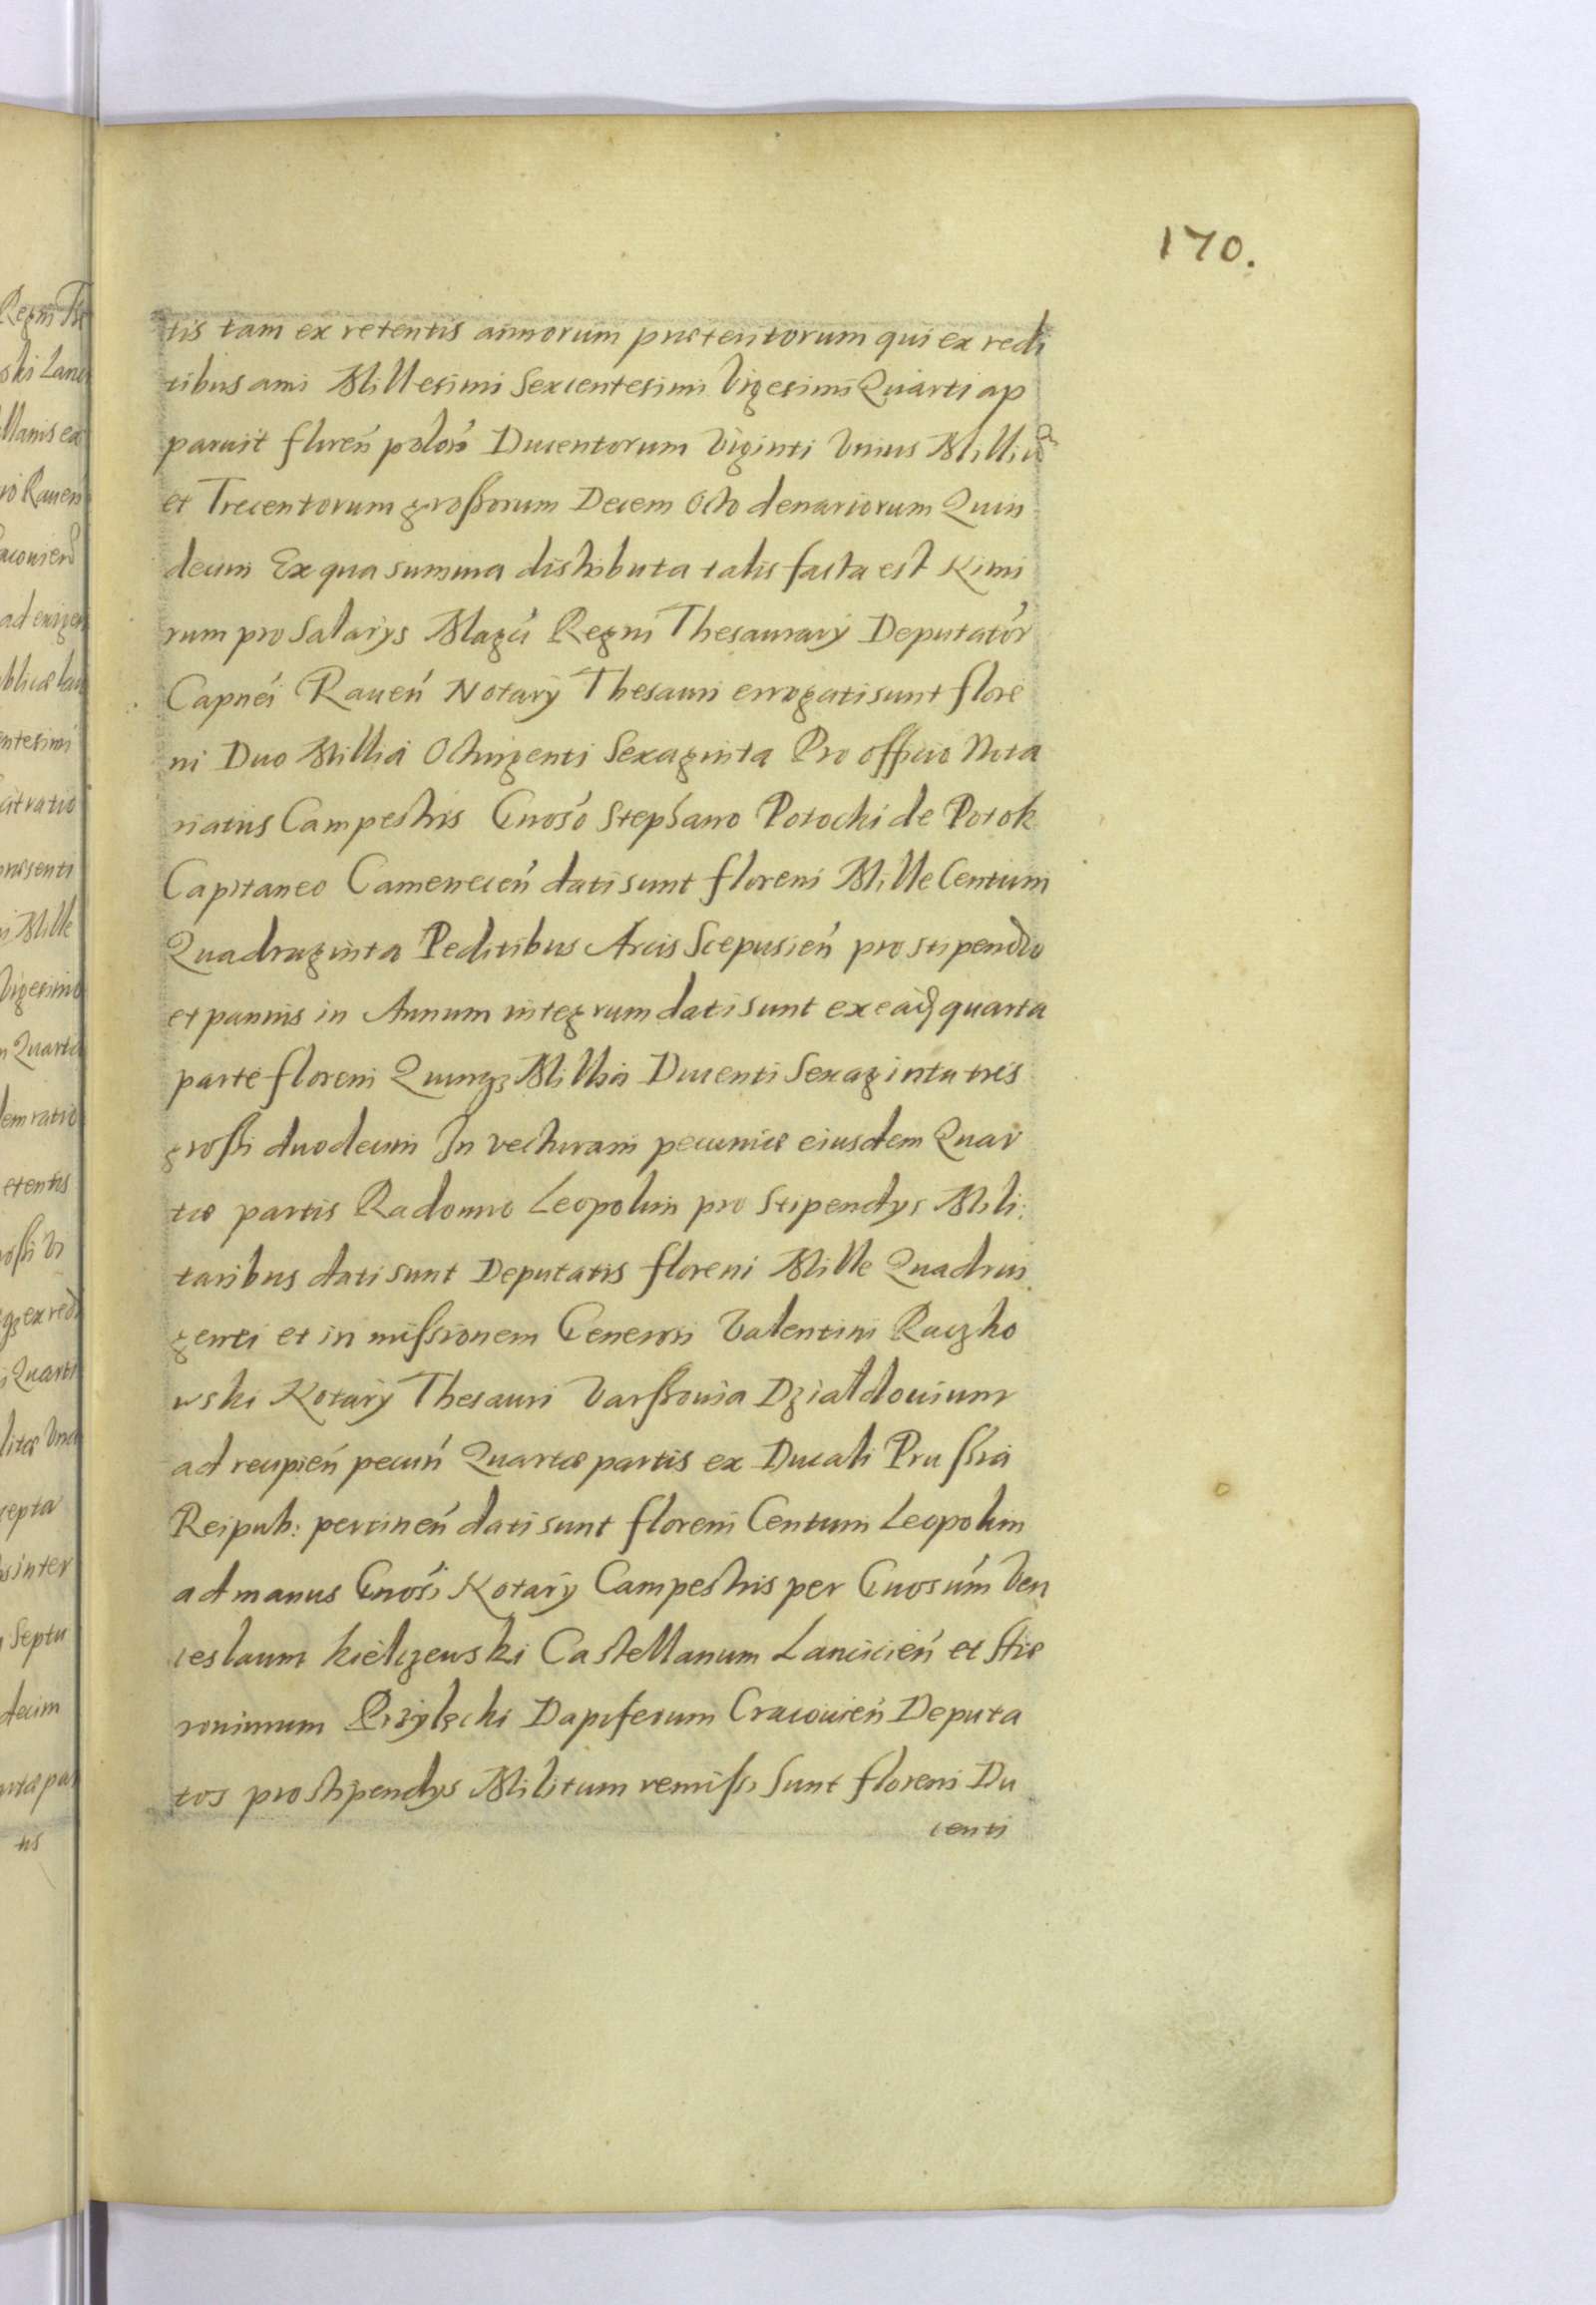 170.
tis tam ex retentis annorum præteritorum qui ex redi
tibus anni Millesimi Sexcentesimi Vigesimi Quarti ap
paruit floreń polon̄ Ducentorum Viginti Unius Milliu
et Trecentorum grossorum Decem Octo denariorum Quin
decim Ex qua summa distributa talis facta est Nimi
rum pro Salarys Magci Regni Thesaurary Deputator
Capnei Raueń Notary Thesauri errogati sunt flore
ni Duo Millia Octingenti Sexaginta Pro officio Nota
riatus Campestris Gnoso Stephano Potocki de Potok
Capitaneo Cameneceń dati sunt floreni Mille Centum
Quadraginta Peditibus Arcis Scepusień pro stipendio
et pannis in Annum integrum dati sunt ex eadq quarta
parte floreni Quinqz Millia Ducenti Sexaginta tres
grossi duodecim In vecturam pecuniæ eiusdem Quar
tæ partis Radomio Leopolim pro Stipendys Mili:
taribus dati sunt Deputatis floreni Mille Quadrin
genti et in missionem Generosi Valentini Raczko
wski Notary Thesauri Varssouia Dzialdouium
ad recipień pecuń Quartæ partis ex Ducali Prussia
Reipub: pertineń dati sunt floreni Centum Leopolim
ad manus Gnosi Notary Campestris per Gnosum Ven
ceslaum Kielczewski Castellanum Lancicień et Hie
ronimum Przyłęcki Dapiferum Cracouień Deputa
tos pro stipendys Militum remissi sunt floreni Du
centi